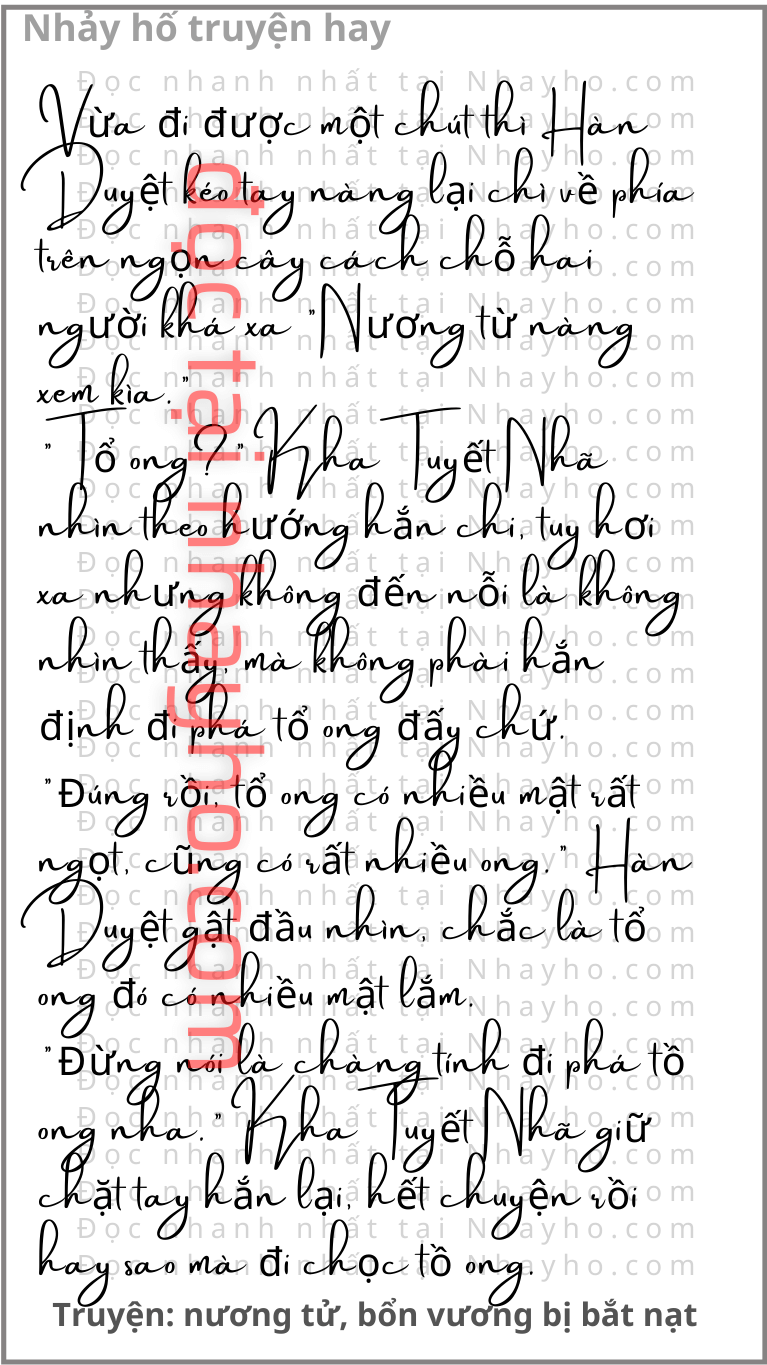 Nhảy hố truyện hay
Đọc nhanh nhất tại Nhayho.com
Vừa đi được một chút thì Hàn
Duyệt kéo tay nàng lại chì về phía
trên ngọn cây cách chỗ hai
người khá xa "Nương từ nàng
xem kìa."
"Tổ ong?" Kha Tuyết Nhã
nhìn theo hướng hắn chi, tuy hơi
xa nhưng không đến nỗi là không
nhìn thấy, mà không phài hắn
định đi phá tổ ong đấy chứ.
"Đúng rồi, tổ ong có nhiều mật rất
ngọt, cũng có rất nhiều ong." Hàn
Duyệt gật đầu nhìn, chắc là tổ
ong đó có nhiều mật lắm.
"Đừng nói là chàng tính đi phá tồ
ong nha." Kha Tuyết Nhã giữ
chặt tay hắn lại, hết chuyện rồi
hay sao mà đi chọc tồ ong.
đọc tại nhayho.com
Truyện: nương tử, bổn vương bị bắt nạt